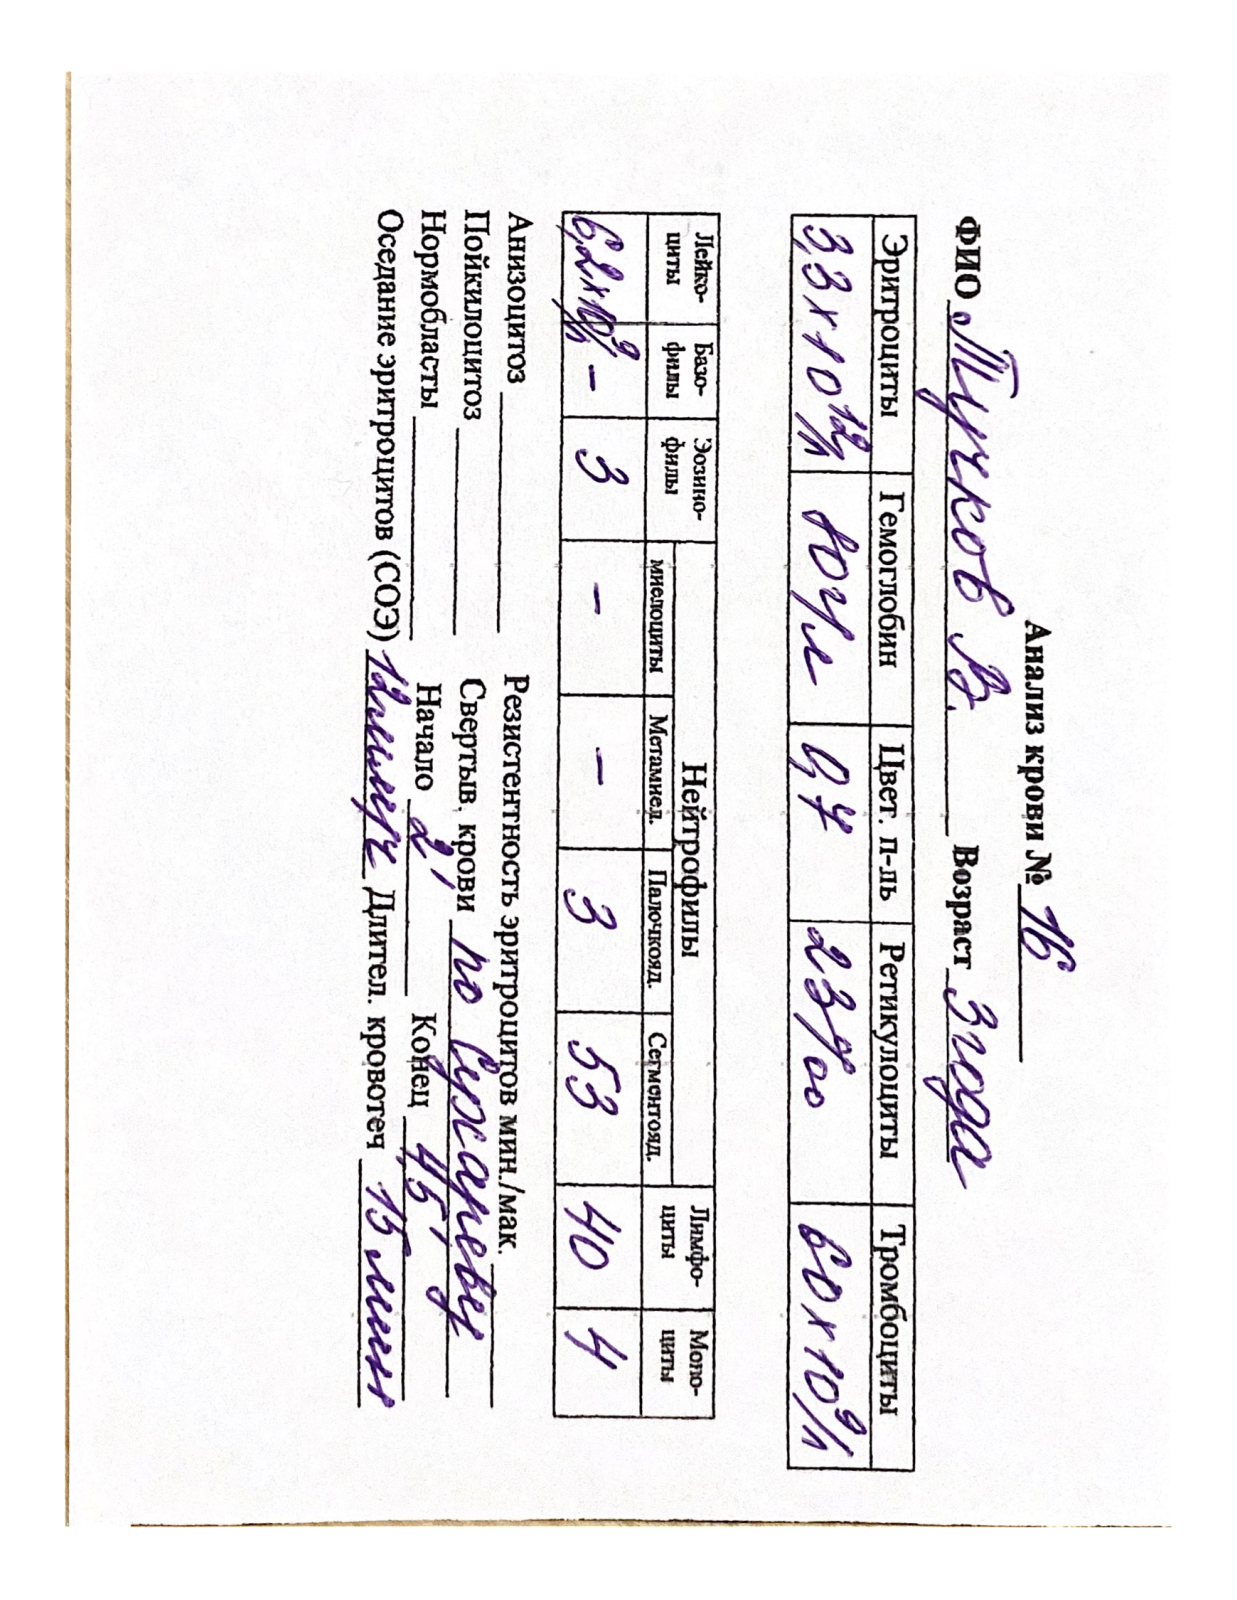 Анализ крови № 16
ФИО Тучков В. Возраст 3 года
Эритроциты Гемоглобин Цвет. п-ль Ретикулоциты Тромбоциты
3,3 х 10¹²/л 80 г/л 0,7 23‰ 60 х 10⁹/л
Лейко- Базо- Эозино- Нейтрофилы Лимфо- Моно-
циты филы филы миелоциты Метамиел. Палочкояд. Сегментояд. циты циты
6,2 х 10⁹/л – 3 – – 3 53 40 4
Анизоцитоз Резистентность эритроцитов мин./мак.
Пойкилоцитоз Свертыв. крови по Сухареву
Нормобласты Начало 2' Конец 4,5'
Оседание эритроцитов (СОЭ) 12 мм/ч Длител. кровотеч 15 мин